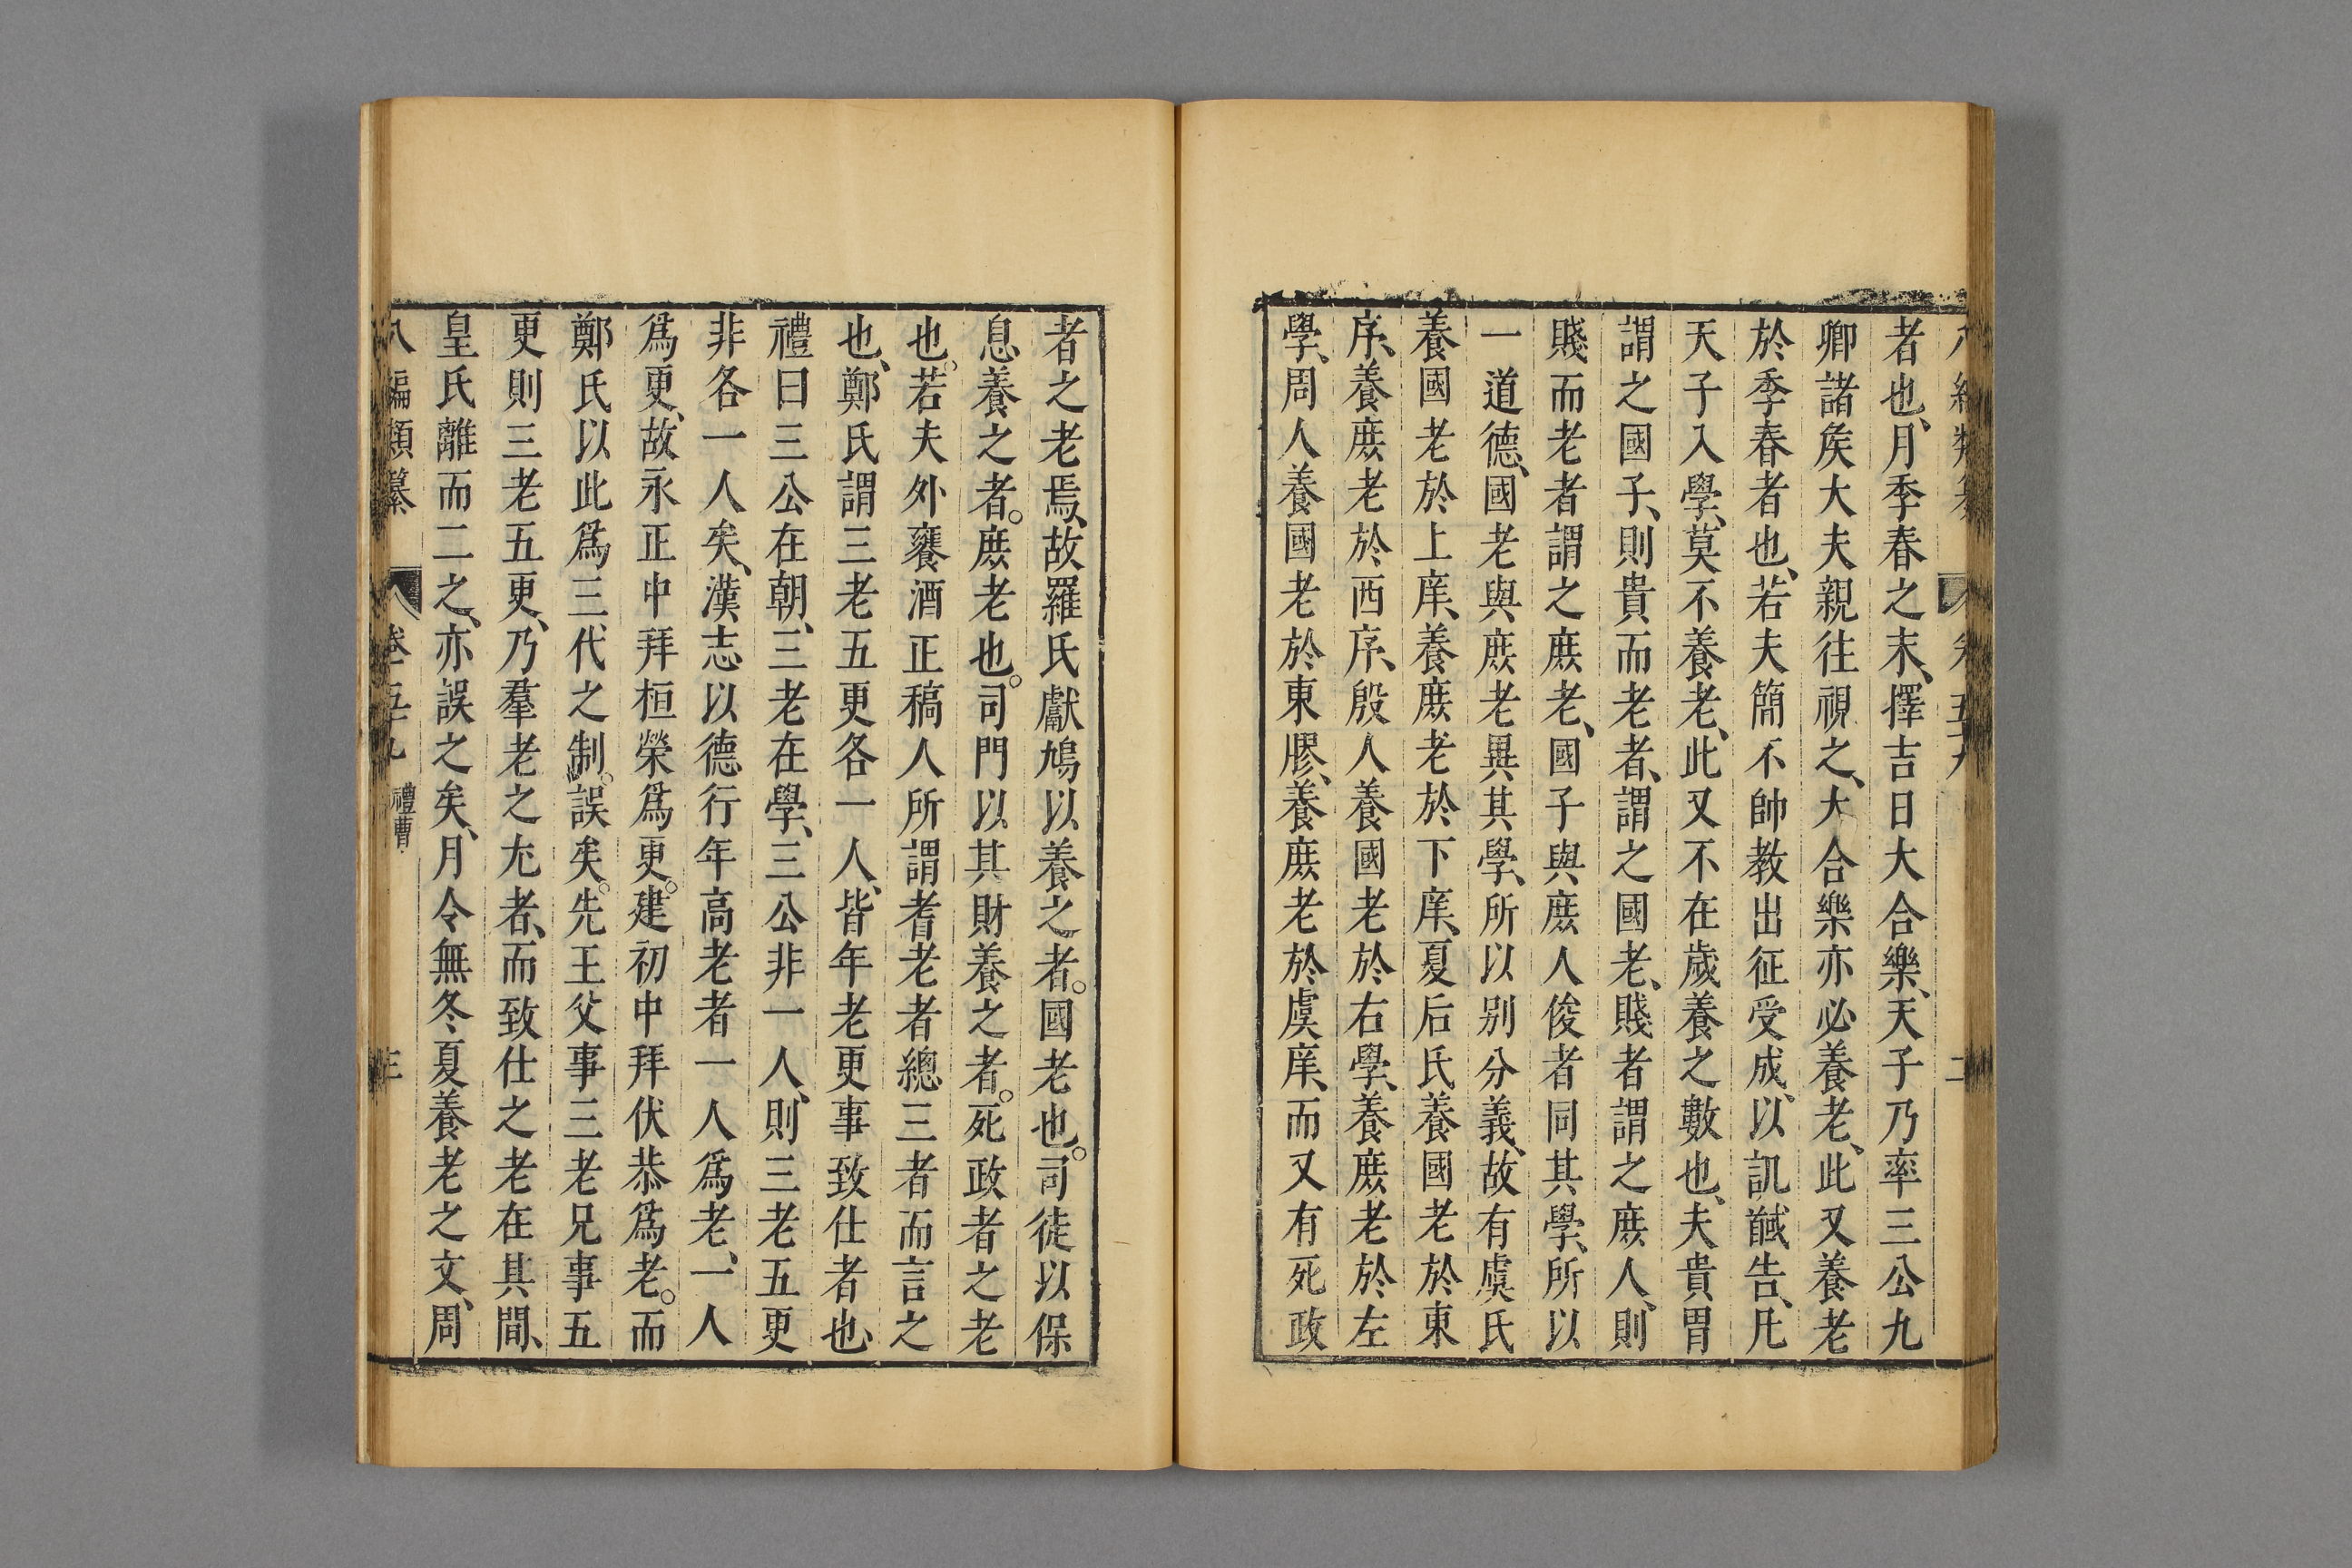 者也、月季春之末、擇吉日大合樂、天子乃率三公九
卿諸矦大夫親往視之、大合樂亦必養老、此又養老
於季春者也、若夫簡不帥教出征受成、以訊馘告、凡
天子入學、莫不養老、此又不在歲養之數也、夫貴胄
謂之國子、則貴而老者、謂之國老、賤者謂之庶人、則
賤而老者謂之庶老、國子與庶人俊者同其學、所以
一道德、國老與庶老異其學、所以别分義、故有虞氏
養國老於上庠、養庶老於下庠、夏后氏養國老於東
序、養庶老於西序、殷人養國老於右學、養庶老於左
學、周人養國老於東膠、養庶老於虞庠、而又有死政
者之老焉、故羅氏獻鳩以養之者。國老也。司徒以保
息養之者。庶老也。司門以其財養之者。死政者之老
也。若夫外饔酒正稿人所謂耆老者總三者而言之
也、鄭氏謂三老五更各一人、皆年老更事致仕者也、
禮曰三公在朝、三老在學、三公非一人、則三老五更
非各一人矣、漢志以德行年高老者一人爲老、一人
爲更、故永正中拜桓榮爲更。建初中拜伏恭爲老。而
鄭氏以此爲三代之制。誤矣。先王父事三老兄事五
更則三老五更、乃羣老之尤者、而致仕之老在其間、
皇氏離而二之、亦誤之矣、月令無冬夏養老之文、周
八編類纂 卷之五十九 禮曹 三